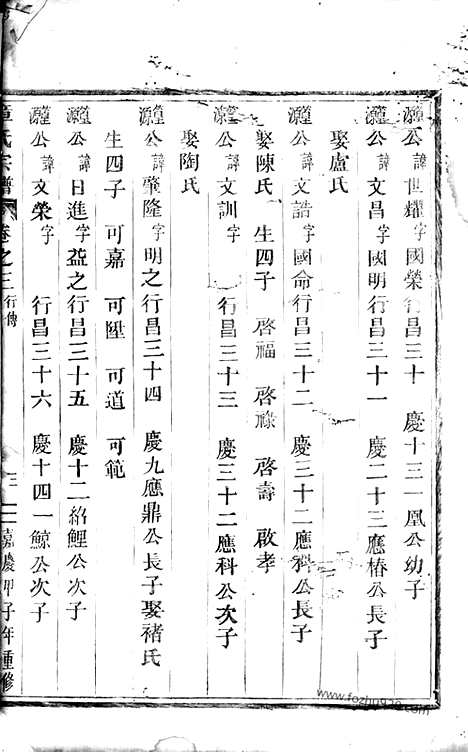 公諱世耀字國榮行昌三十 慶十三一凰公幼子
公諱文昌字國明行昌三十一 慶二十三應椿公長子
娶盧氏
公諱文誥字國命行昌三十二 慶三十二應科公長子
娶陳氏 生四子 啓福 啓祿 啓壽 啟孝
公諱文訓字 行昌三十三 慶三十二應科公次子
娶陶氏
公諱肇隆字明之行昌三十四 慶九應鼎公長子娶褚氏
生四子 可嘉 可陞 可道 可範
公諱日進字益之行昌三十五 慶十二紹鯉公次子
公諱文榮字 行昌三十六 慶十四一鯨公次子
章氏宗譜 卷之三 行傳 三 嘉慶甲子年重修
www.fozhu920.com